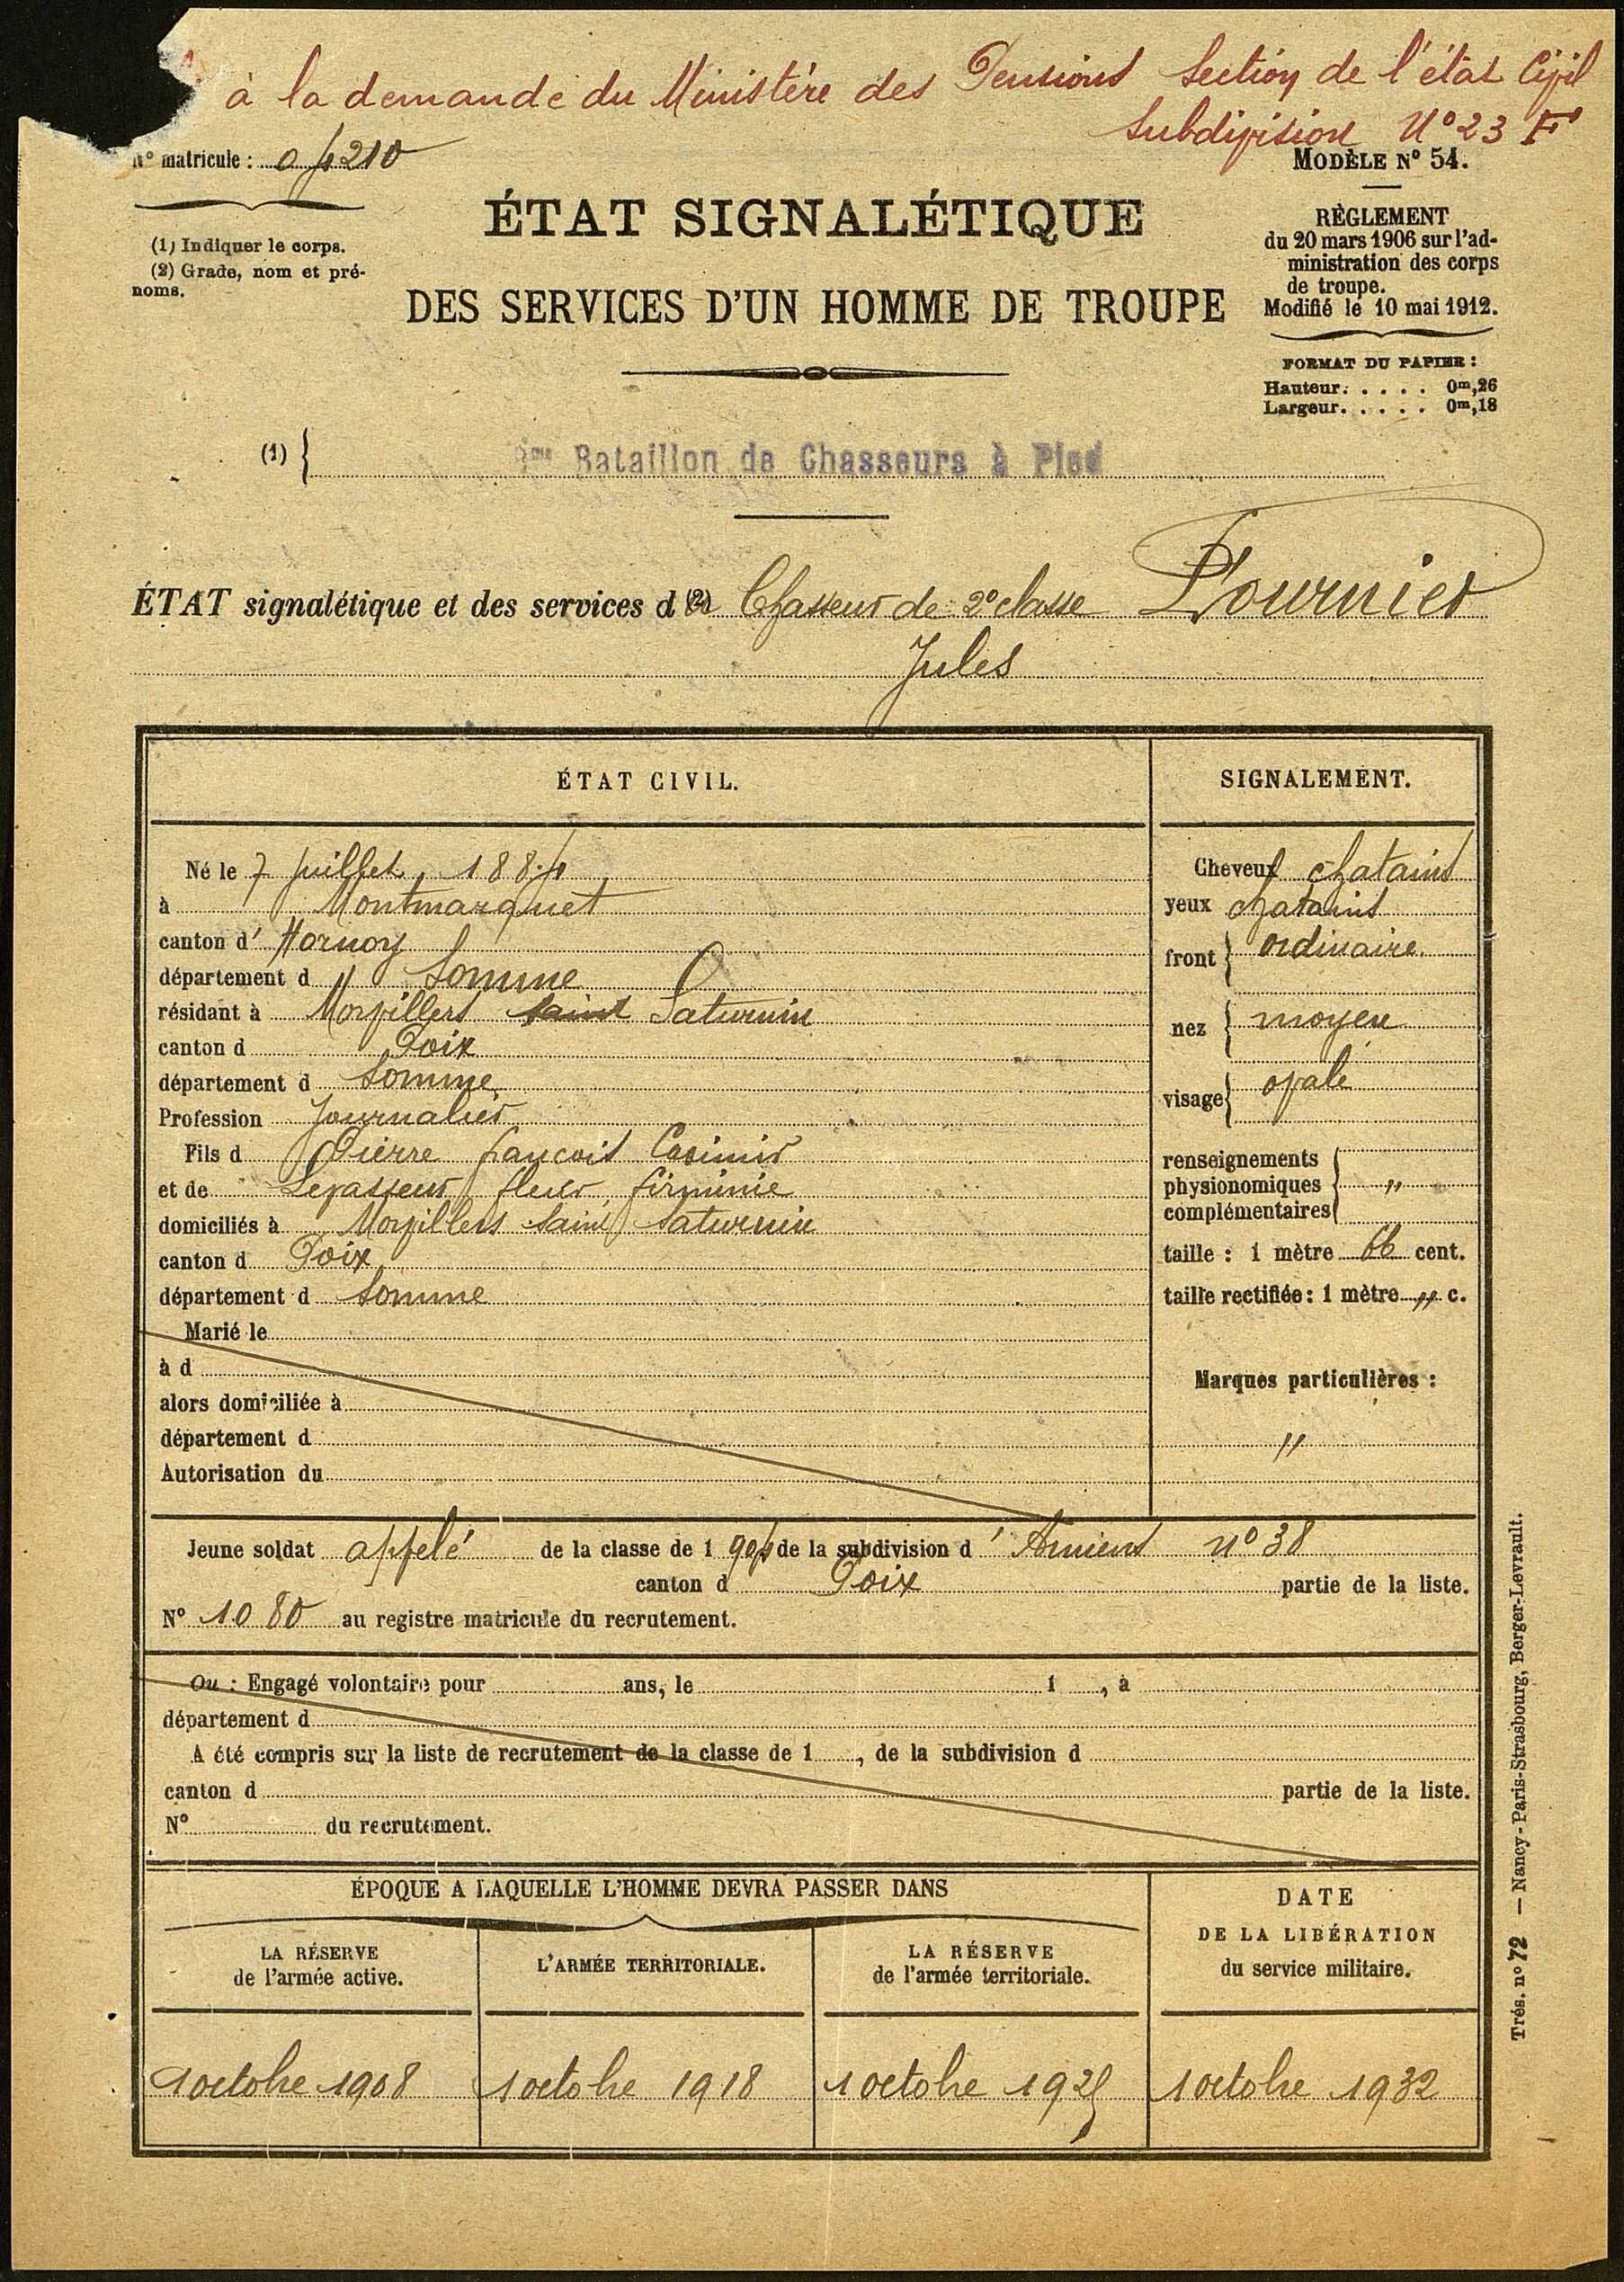 à la demande du Ministère des Pensions Section de l'état Civil
Subdivision N° 23 F
N° matricule : 04210
MODÈLE N° 54.
(1) Indiquer le corps.
(2) Grade, nom et pré-
noms.
ÉTAT SIGNALÉTIQUE
DES SERVICES D'UN HOMME DE TROUPE
RÈGLEMENT
du 20 mars 1906 sur l'ad-
ministration des corps
de troupe.
Modifié le 10 mai 1912.
FORMAT DU PAPIER :
Hauteur. . . . . 0m,26
Largeur. . . . . 0m,18
(1) { Bataillon de Chasseurs à Pied
ÉTAT signalétique et des services d (2) Chasseur de 2e classe Fournier
Jules
ÉTAT CIVIL.
Né le 7 juillet 1884
à Montmarquet
canton d' Hornoy
département d Somme
résidant à Morvillers Saint Saturnin
canton d Poix
département d Somme
Profession Journalier
Fils d Pierre françois Casimir
et de Levasseur fleur firminie
domiciliés à Morvillers Saint Saturnin
canton d Poix
département d Somme
Marié le
à d
alors domiciliée à
département d
Autorisation du
SIGNALEMENT.
Cheveux chatains
yeux chatains
front { ordinaire
nez { moyen
visage { ovale
renseignements
physionomiques { "
complémentaires
taille : 1 mètre 66 cent.
taille rectifiée : 1 mètre " c.
Marques particulières :
"
Jeune soldat appelé de la classe de 1 904 de la subdivision d' Amiens n° 38
canton d Poix partie de la liste.
N° 1080 au registre matricule du recrutement.
Ou : Engagé volontaire pour ans, le 1 , à
département d
A été compris sur la liste de recrutement de la classe de 1 , de la subdivision d
canton d partie de la liste.
N° du recrutement.
ÉPOQUE A LAQUELLE L'HOMME DEVRA PASSER DANS
LA RÉSERVE
de l'armée active.
L'ARMÉE TERRITORIALE.
LA RÉSERVE
de l'armée territoriale.
DATE
DE LA LIBÉRATION
du service militaire.
1 octobre 1908
1 octobre 1918
1 octobre 1925
1 octobre 1932
Trés. n° 72 — Nancy-Paris-Strasbourg, Berger-Levrault.